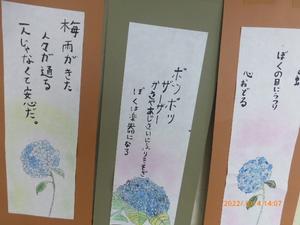 梅雨がきた
人々が通る
一人じゃなくて安心だ。
ポツポツ
ザーザー
かさやあじさいにふりそそぎ
ぼくは楽器になる
ぼくの目にうつり
心おどる
2022/ 14:07